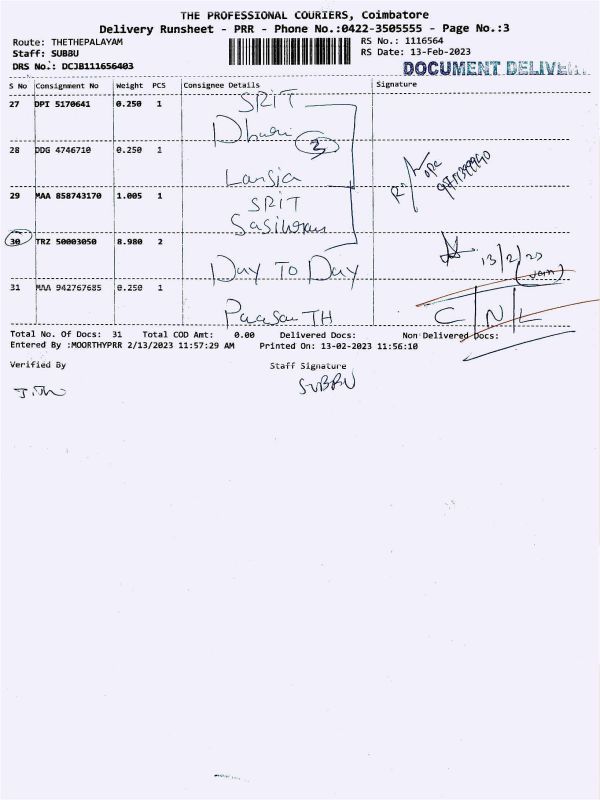 THE PROFESSIONAL COURIERS, Coimbatore
Delivery Runsheet - PRR - Phone No.:0422-3505555 - Page No.:3
Route: THETHEPALAYAM
Staff: SUBBU
DRS No.: DCJB111656403
RS No.: 1116564
RS Date: 13-Feb-2023
DOCUMENT DELIVE
S No Consignment No Weight PCS Consignee Details Signature
27 DPI 5170641 0.250 1 SRIT
28 DDG 4746710 0.250 1 3
29 MAA 858743170 1.005 1 SRIT
30 TRZ 50003050 8.980 2 13/2/23
Day To Day
31 MAA 942767685 0.250 1 C/N/L
TH
Total No. Of Docs: 31 Total COD Amt: 0.00 Delivered Docs: Non Delivered Docs:
Entered By :MOORTHYPRR 2/13/2023 11:57:29 AM Printed On: 13-02-2023 11:56:10
Verified By Staff Signature
SUBBU